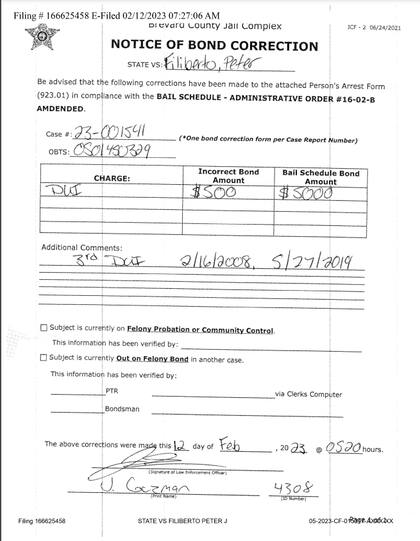 Filing # 166625458 E-Filed 02/12/2023 07:27:06 AM
Brevard County Jail Complex
ICF - 2 06/24/2021
NOTICE OF BOND CORRECTION
STATE VS: Filiberto, Peter
Be advised that the following corrections have been made to the attached Person's Arrest Form
(923.01) in compliance with the BAIL SCHEDULE - ADMINISTRATIVE ORDER #16-02-B
AMDENDED.
Case #: 23-001541 (*One bond correction form per Case Report Number)
OBTS: 0501480329
CHARGE: Incorrect Bond Amount Bail Schedule Bond Amount
DUI $500 $5000
Additional Comments:
3rd DUI 2/16/2008, 5/27/2019
Subject is currently on Felony Probation or Community Control.
This information has been verified by:
Subject is currently Out on Felony Bond in another case.
This information has been verified by:
PTR via Clerks Computer
Bondsman
The above corrections were made this 12 day of Feb, 2023 @ 0520 hours.
(Signature of Law Enforcement Officer)
J. Cozman 4308
(Print Name) (ID Number)
Filing 166625458 STATE VS FILIBERTO PETER J